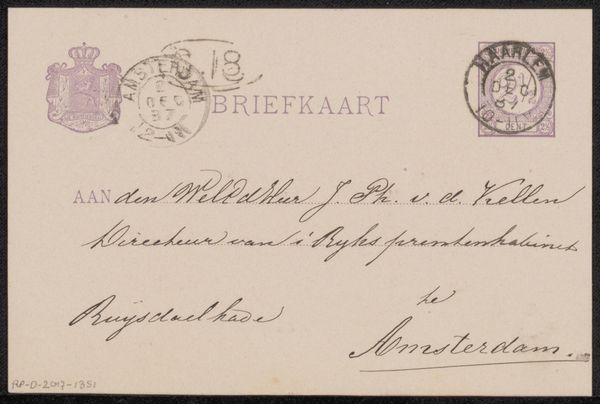 S 18
AMSTERDAM
2
DEC
87
12-1N
BRIEFKAART
HAARLEM
2
DEC
87
10-11V
CENT
AAN den WelEd Heer J. Ph. v. d. Kellen
Directeur van 's Ryks prentenkabinet
te
Ruysdaelkade
Amsterdam.
RP-D-2017-1351